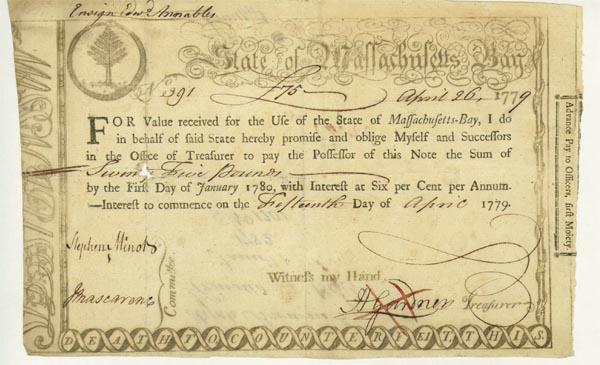 Ensign Edwd Annables
State of Massachusetts Bay
No 391 £75 April 26, 1779
FOR Value received for the Use of the State of Massachusetts-Bay, I do
in behalf of said State hereby promise and oblige Myself and Successors
in the Office of Treasurer to pay the Possessor of this Note the Sum of
Five Pounds
by the First Day of January 1780, with Interest at Six per Cent per Annum.
—Interest to commence on the Fifteenth Day of April 1779.
Stephen Minot
Witness my Hand,
JMascarene
Committee
HGardner Treasurer
DEATH TO COUNTERFEIT THIS
Advance Pay to Officers, first Moiety.